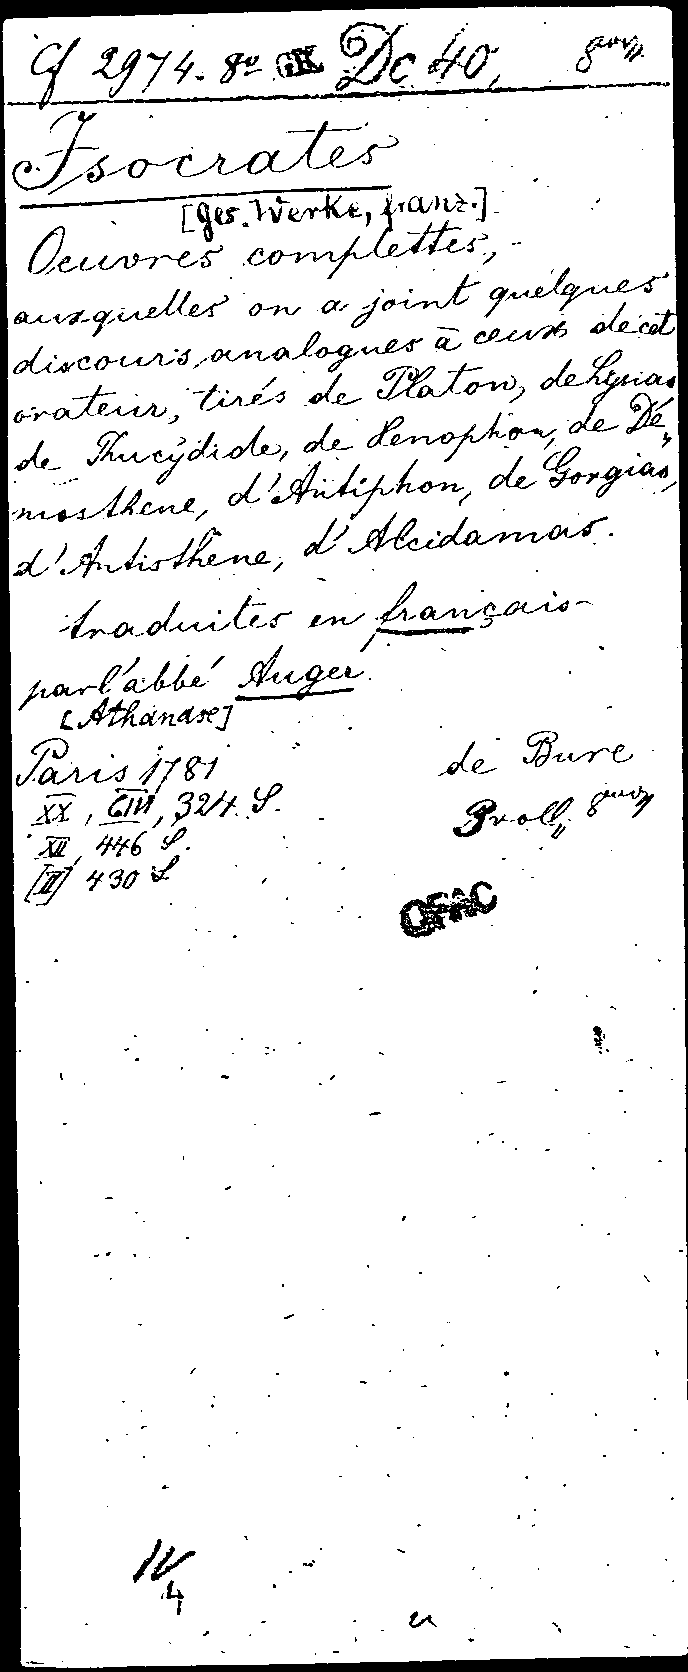 Cf 2974. 8º GK Dc 40,
Isocrates
[Ges. Werke, franz.]
Oeuvres complettes,
auxquelles on a joint quelques
discours analogues à ceux de cet
orateur, tirés de Platon, de Lysias
de Thucydide, de Xenophon, de Dé„
mosthene, d'Antiphon, de Gorgias,
d'Antisthène, d'Alcidamas.
traduites en français
par l'abbé Auger
[Athanase]
Paris 1781 de Bure
XX, CIII, 324 S.
XII, 446 S.
[III] 430 S
OFAC
IV
4